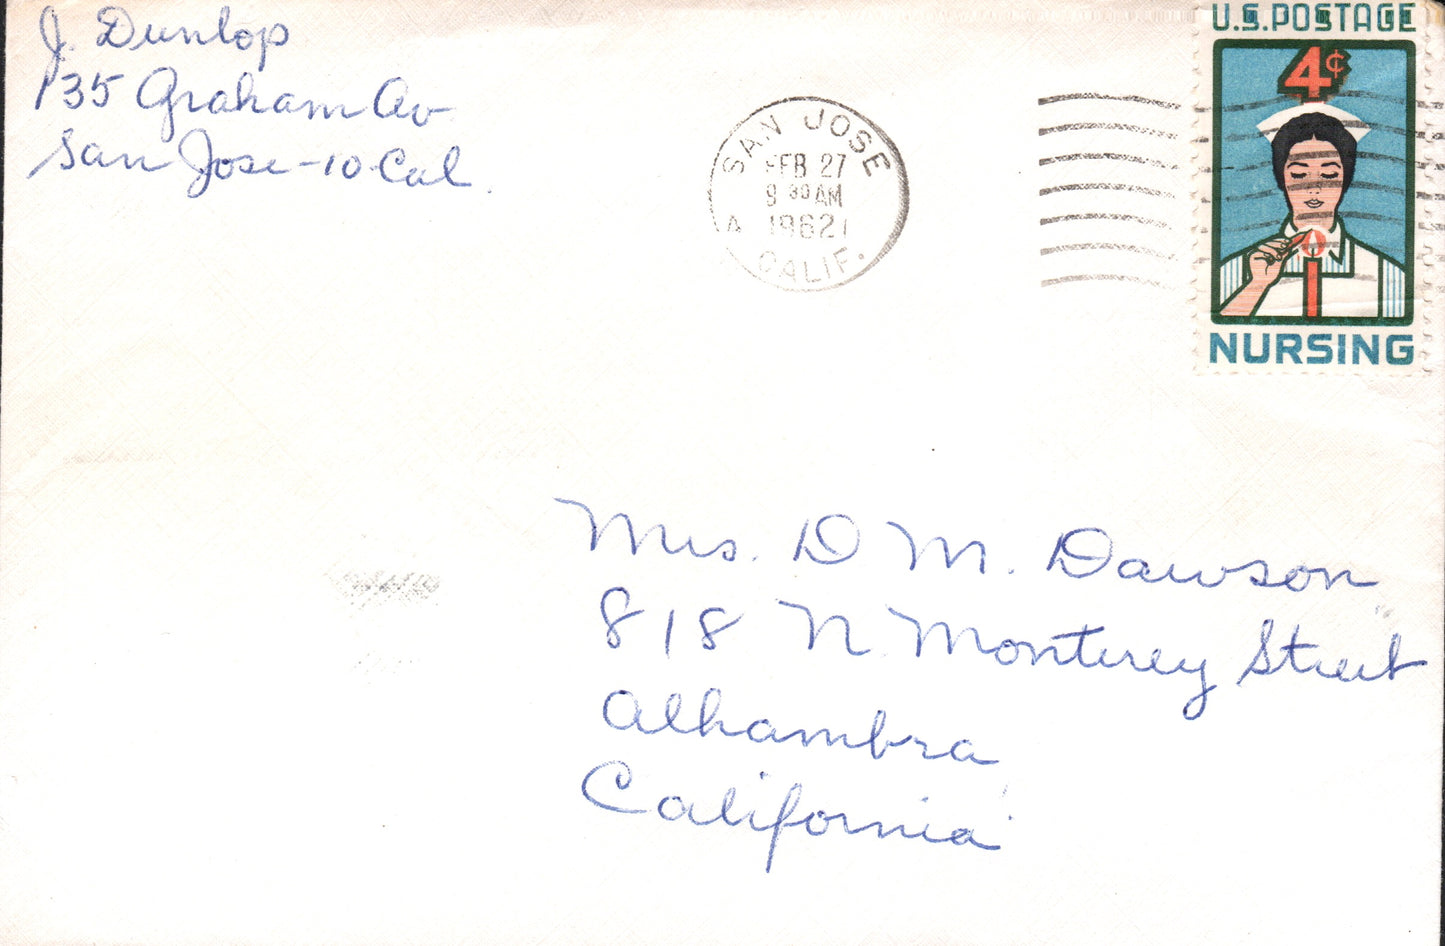 J. Dunlop
135 Graham Av
San Jose-10-Cal.
SAN JOSE
FEB 27
9 30 AM
A 1962 1
CALIF.
U.S. POSTAGE
4¢
NURSING
Mrs. D M. Dawson
818 N. Monterey Street
Alhambra
California